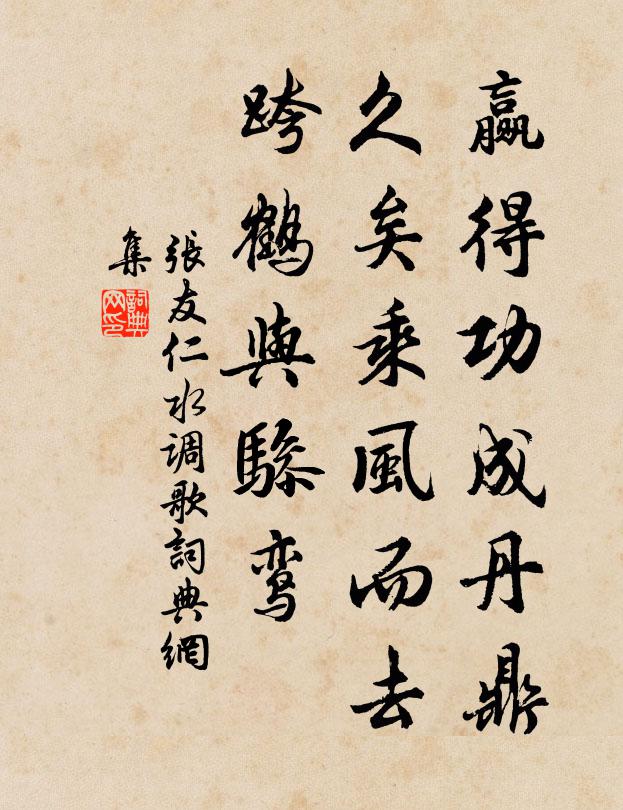 贏得功成丹鼎
久矣乘風而去
跨鶴與驂鸾
張友仁水调歌詞典網
集
詞典网印